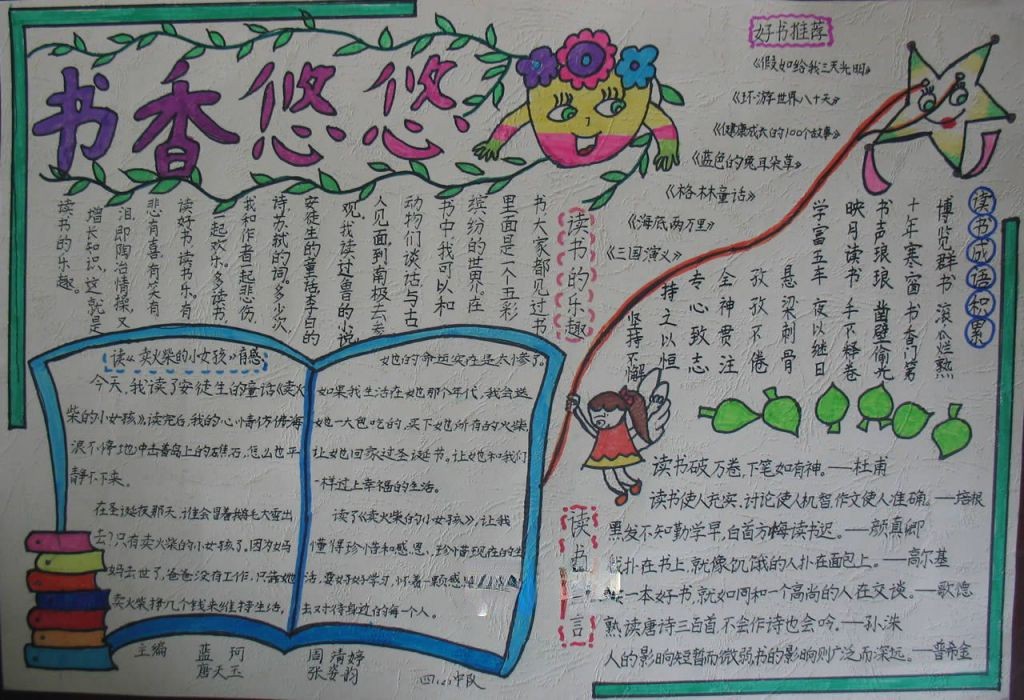 书香悠悠
好书推荐
《假如给我三天光明》
《环游世界八十天》
《健康成长的100个故事》
《蓝色的兔耳朵草》
《格林童话》
《海底两万里》
《三国演义》
读书成语积累
博览群书 滚瓜烂熟
十年寒窗 书香门第
书声琅琅 凿壁偷光
映月读书 手不释卷
学富五车 夜以继日
悬梁刺骨
孜孜不倦
全神贯注
专心致志
持之以恒
坚持不懈
读书的乐趣
书大家都见过书
里面是一个五彩
缤纷的世界,在
书中,我可以和
动物们谈话与古
人见面,到南极去参
观。我读过鲁的小说,
安徒生的童话,李白的
诗,苏轼的词。多少次,
我和作者一起悲伤,
一起欢乐。多读书,
读好书,读书乐,有
悲有喜,有笑有
泪,即陶冶情操,又
增长知识。这就是
读书的乐趣。
读《卖火柴的小女孩》有感
今天,我读了安徒生的童话《卖火
柴的小女孩》,读完后,我的心情仿佛海
浪不停地冲击着岛上的礁石,怎么也平
静不下来。
在圣诞夜那天,谁会冒着鹅毛大雪出
去?只有卖火柴的小女孩了。因为妈
妈去世了,爸爸没有工作,只靠她
卖火柴挣几个钱来维持生活。
她的命运实在是太惨了。
如果我生活在她那个年代,我会送
她一大包吃的,买下她所有的火柴,
让她回家过圣诞节。让她和我们
一样过上幸福的生活。
读了《卖火柴的小女孩》,让我
懂得珍惜和感恩、珍惜现在的生
活,要好好学习,怀着一颗感
去对待身边的每一个人。
读书名言
读书破万卷,下笔如有神。——杜甫
读书使人充实,讨论使人机智,作文使人准确。——培根
黑发不知勤学早,白首方悔读书迟。——颜真卿
我扑在书上,就像饥饿的人扑在面包上。——高尔基
读一本好书,就如同和一个高尚的人在交谈。——歌德
熟读唐诗三百首,不会作诗也会吟。——孙洙
人的影响短暂而微弱,书的影响则广泛而深远。——普希金
主编 蓝珂 周清婷
唐天玉 张姿韵 中队